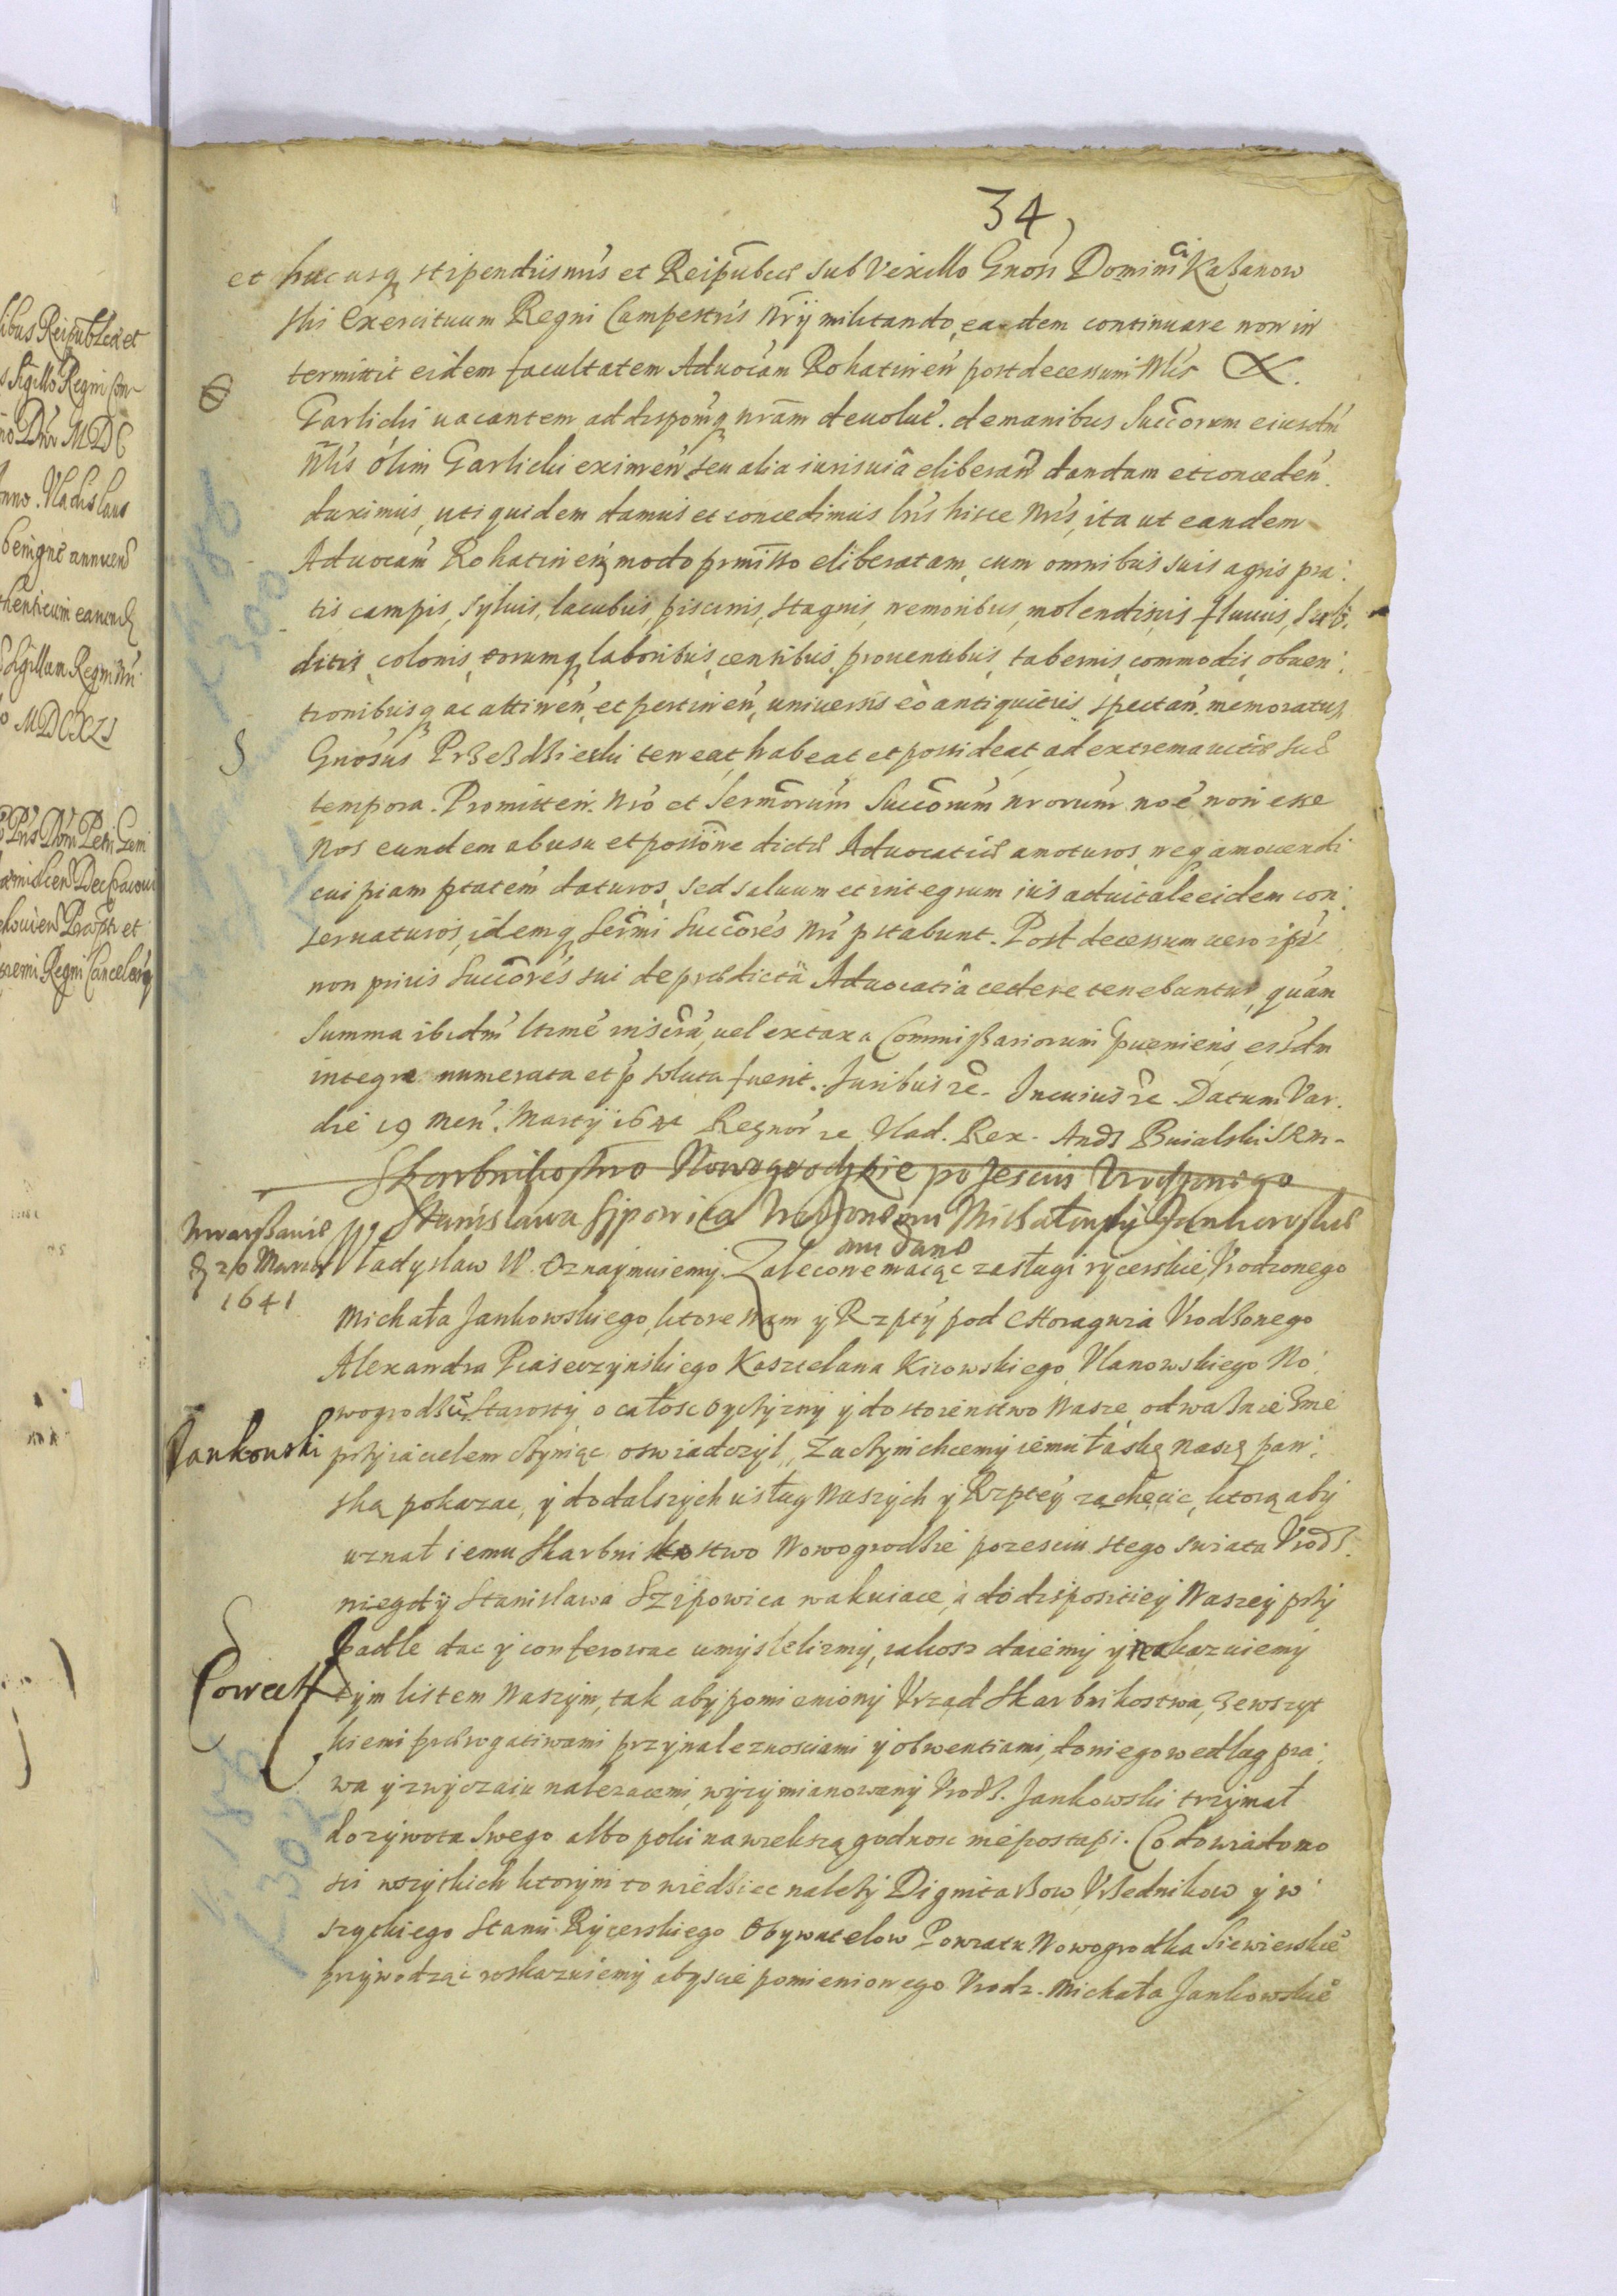 34
et hucusq stipendiis nris et Reipubcæ sub Vexillo Gnosi Dominici Kaßanow
ski Exercituum Regni Campestris Nrij militando, eandem continuare non in
termittit eidem facultatem Advocam Rohatinen post decessum Mlis
Garlicki vacantem ad dispomq nram devolut. de manibus Succorum eiusdm
Mlis olim Garlicki eximen seu alia iuris via eliberan dandam et conceden.
duximus, uti quidem damus et concedimus lris hisce Nris, ita ut eandem
Advocam Rohatinen modo prmisso eliberatam, cum omnibus suis agris pra:
tis campis, sylvis, lacubus, piscinis, stagnis, nemoribus, molendinis fluvиis, Sub:
ditis, colonis, eorumq laboribus, censibus, proventibus, tabernis, commodis, obven:
tionibusq ac attinen, et pertinen, universis eò antiquitus spectan. memoratus
Gnosus Przedziecki teneat, habeat et possideat, ad extrema vitæ suæ
tempora. Promitten. Nro et Sermorum Succorum nrorum noe non esse
Nos eundem ab usu et possione dictæ Advocatiæ amoturos, neq amovendi
cuipiam ptatem daturos, sed salvum et integrum ius advitale eidem con:
servaturos, idemq Sermi Succores Nri pstabunt. Post decessum vero ipsius
non prius Succores sui de prædictâ Advocatiâ cedere tenebuntur, quam
Summa ibidm ltime inscra, vel ex taxa Commißariorum pveniens eisdm
integre numerata et psoluta fuerit. Juribus re. In cuius re Datum Var.
die 19 Men. Martij 1641 Regnor re Vlad. Rex. Ands Buialski SRM-
Skarbnikostwo Nowogrodzkie po zesciu Vrodzonego
Stanisława Szpowica Vrodzonemu Michałowi Jankowskie
mu dano
w Warßawie
d 20 Marca
1641
Władysław IV. Oznaymuiemy. Zalecone maiąc zasługi rycerskie, Vrodzonego
Michała Jankowskiego, ktore Nam y Rzpty pod Choragwia Vrodzonego
Alexandra Piaseczynskiego Kasztelana Kiiowskiego, Vlanowskiego No:
wogrodzkie Starosty o całosc Oyczyzny y dostoienstwo Nasze odważnie znie
Jankouski
przyiacielem czyniąc oswiadczył, Zaczym chcemy iemu łaskę naszę pan:
ską pokazac, y do dalszych usług Naszych y Rzptey zachęcic, ktorą aby
uznał iemu Skarbnikostwo Nowogrodzkie po zesciu z tego swiata Vrodz.
niegdy Stanisława Szipowica wakuiace, a do disposiciey Naszey przy
padłe dac y conferowac umyslelismy, iakosz daiemy y pokazuiemy
tym listem Naszym, tak aby pomieniony Vrząd Skarbnikostwa, zewszyt
kiemi prærogatiwami przynaleznosciami y obwentiami, do niego wedlug pra:
wa y zwyczaiu nalezacemi, wyzymianowany Vrodz. Jankowski trzymał
do zywota swego albo poki na wieksza godnosc nie postąpi. Co do wiadomo
sci wszytkich ktorym to wiedziec nalezy Dignitarzow, Vrzednikow y w:
szytkiego Stanu Rycerskiego Obywatelow Powiatu Nowogrodka Siewierskie
przywodząc roskazuiemy abyscie pomienionego Vrodz. Michała Jankowskie